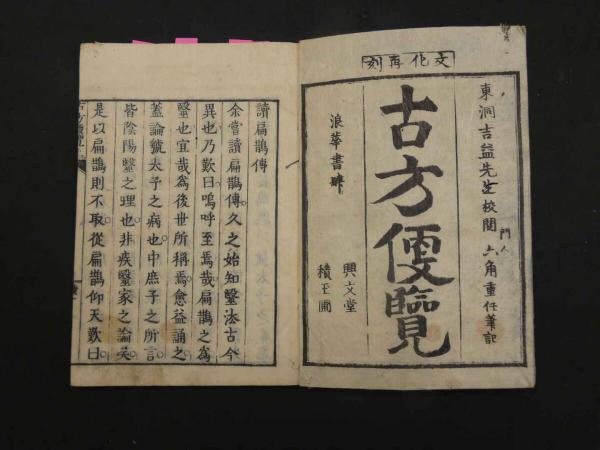 文化再刻
東洞吉益先生校閲 門人 六角重任筆記
古方便覽
浪華書肆
興文堂
積玉圃
讀扁鵲傳
余嘗讀扁鵲傳。久之始知毉法古今
異也。乃歎曰。嗚呼至焉哉。扁鵲之為
毉也。宜哉為後世所稱焉。愈益誦之
蓋論虢太子之病也。中庶子之所言
皆陰陽毉之理也。非疾毉家之論矣
是以扁鵲則不取。從扁鵲仰天歎曰。